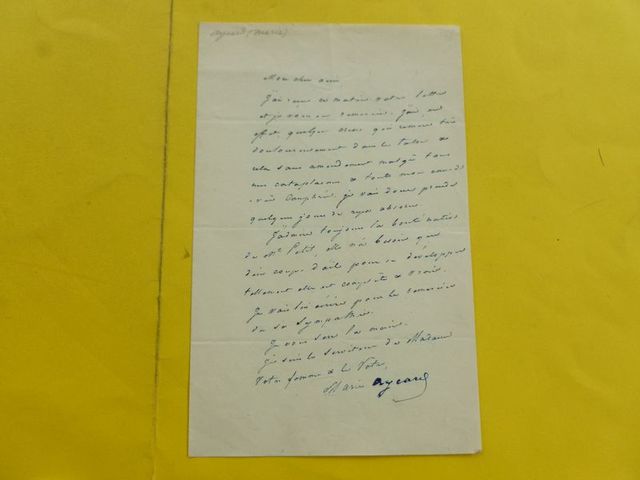 aycard (marie)
Mon cher ami
J'ai reçu ce matin votre lettre
et je vous en remercie. J'ai, en
effet quelque chose qui remue très
douloureusement dans le talon &
cela sans amendement malgré tous
mes cataplasmes & toute mon eau-de
-vie camphrée. je vais donc prendre
quelques jours de repos absolu.
J'admire toujours la bonté
de Mr Petit, elle n'a besoin que
d'un coup d'aile pour se développer
tellement elle est complète & vraie.
Je vais lui écrire pour le remercier
de sa sympathie.
Je vous serre la main.
Je suis le serviteur de Madame
Votre femme & le Vôtre,
Marie Aycard